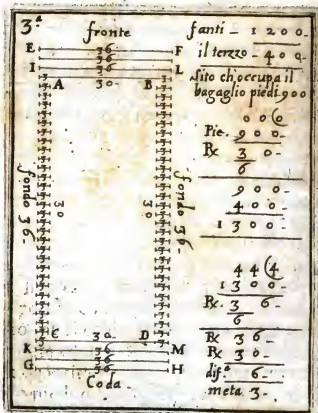 3ª
fronte
E 36 F
36
I 36 L
A 30 B
fondo 36
30
30
fondo 36
C 30 D
K 36 M
36
G 36 H
Coda
fanti 1200
il terzzo 400
sito ch'occupa il
bagaglio piedi 900
00(0
Pie. 900
℞ 30
6
900
400
1300
44(4
1300
℞ 36
6
℞ 36
℞ 30
dif.ª 6
meta 3